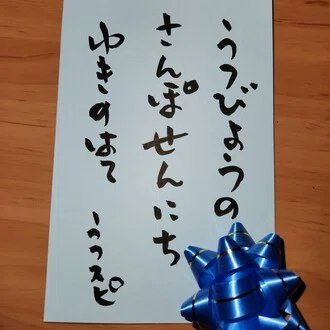 うつびょうの
さんぽせんにち
ゆきのはて
うつスピ